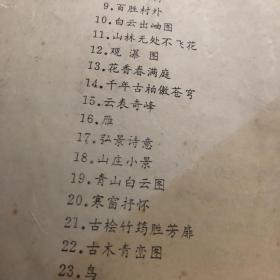 9.百胜村外
10.白云出岫图
11.山林无处不飞花
12.观 瀑 图
13.花香春满庭
14.千年古柏傲苍穹
15.云表奇峰
16.雁
17.弘景诗意
18.山庄小景
19.青山白云图
20.寒窗抒怀
21.古桧竹筠胜芳扉
22.古木青峦图
23.鸟